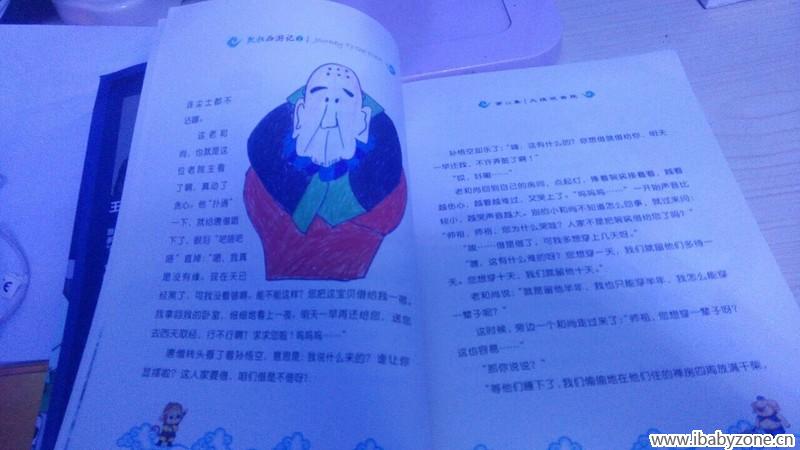 凯叔西游记②
连尘土都不
沾哪。
这老和
尚,也就是这
位老院主看
了啊,真动了
贪心。他“扑通”
一下,就给唐僧跪
下了,眼泪“吧嗒吧
嗒”直掉:“嗯,我真
是没有缘。现在天已
经黑了,可我没看够啊,能不能这样?您把这宝贝借给我一夜,
我拿回我的卧室,细细地看上一夜。明天一早再还给您,送您
去西天取经,行不行啊?求求您啦!呜呜呜……”
唐僧转头看了看孙悟空,意思是:我说什么来的?谁让你
显摆啦?这人家要借,咱们借是不借呀?
孙悟空却乐了:“嗨,这有什么的?你想借就借给你,明天
一早还我,不许弄脏了啊!”
“哎,好嘞……”
老和尚回到自己的房间,点起灯,捧着袈裟看着看着,越看
越伤心,越看越难过,又哭上了。“呜呜呜……”一开始声音比
较小,越哭声音越大。别的小和尚不知道怎么回事,就过来问:
“师祖,师祖,您为什么哭啊?人家不是把袈裟借给您了吗?”
“唉……借是借了,可我多想穿上几天呀。”
“嗨,这有什么难的呀?您想穿一天,我们就留他们多待一
天。您想穿十天,我们就留他十天。”
老和尚说:“就是留他半年,我也只能穿半年,我怎么能穿
一辈子呢?”
这时候,旁边一个和尚走过来了:“师祖,您想穿一辈子呀?
这也容易……”
“那你说说?”
“等他们睡下了,我们偷偷地在他们住的禅房四周放满干柴,
www.ibabyzone.cn